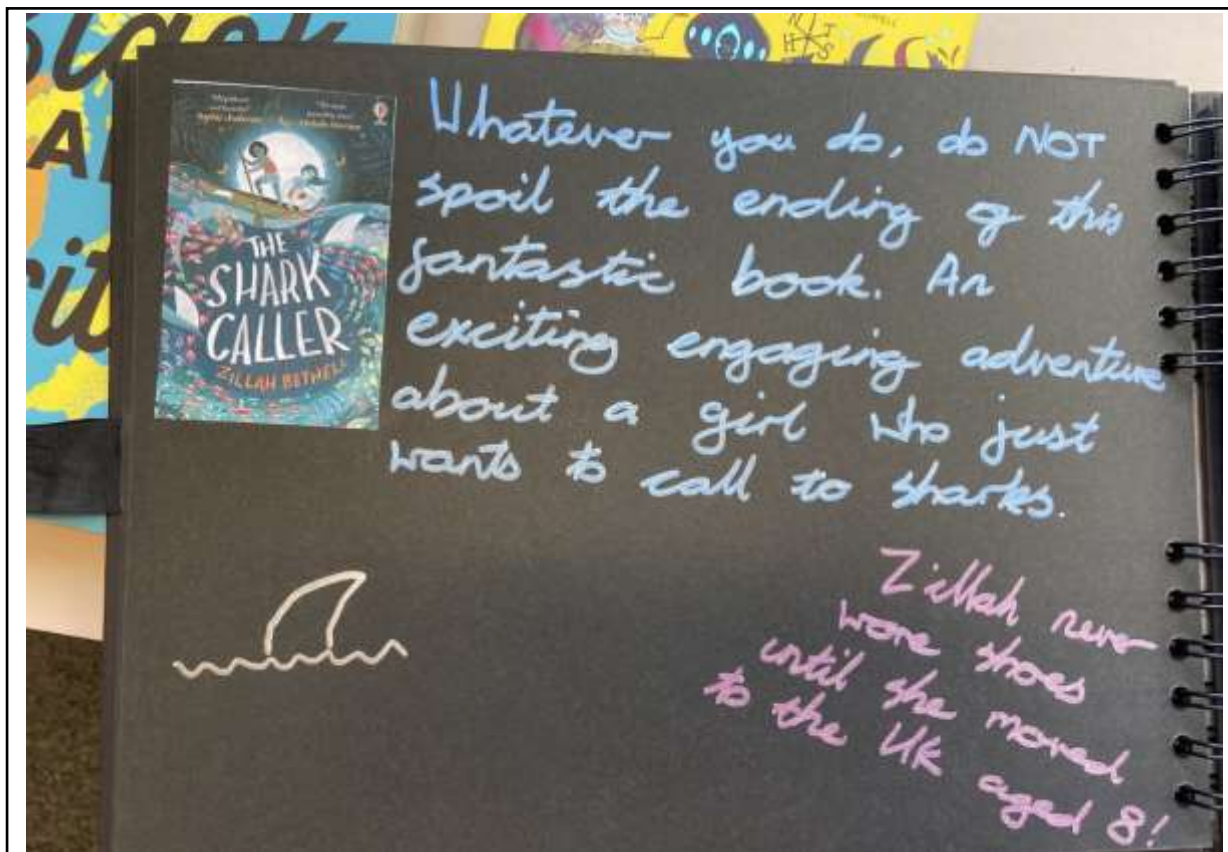 Black
HOWELL
N
H S
Sophie Anderson
THE
SHARK
CALLER
ZILLAH BETHELL
Whatever you do, do NOT
spoil the ending of this
fantastic book. An
exciting engaging adventure
about a girl who just
wants to call to sharks.
Zillah never
wore shoes
until she moved
to the UK
aged 8!